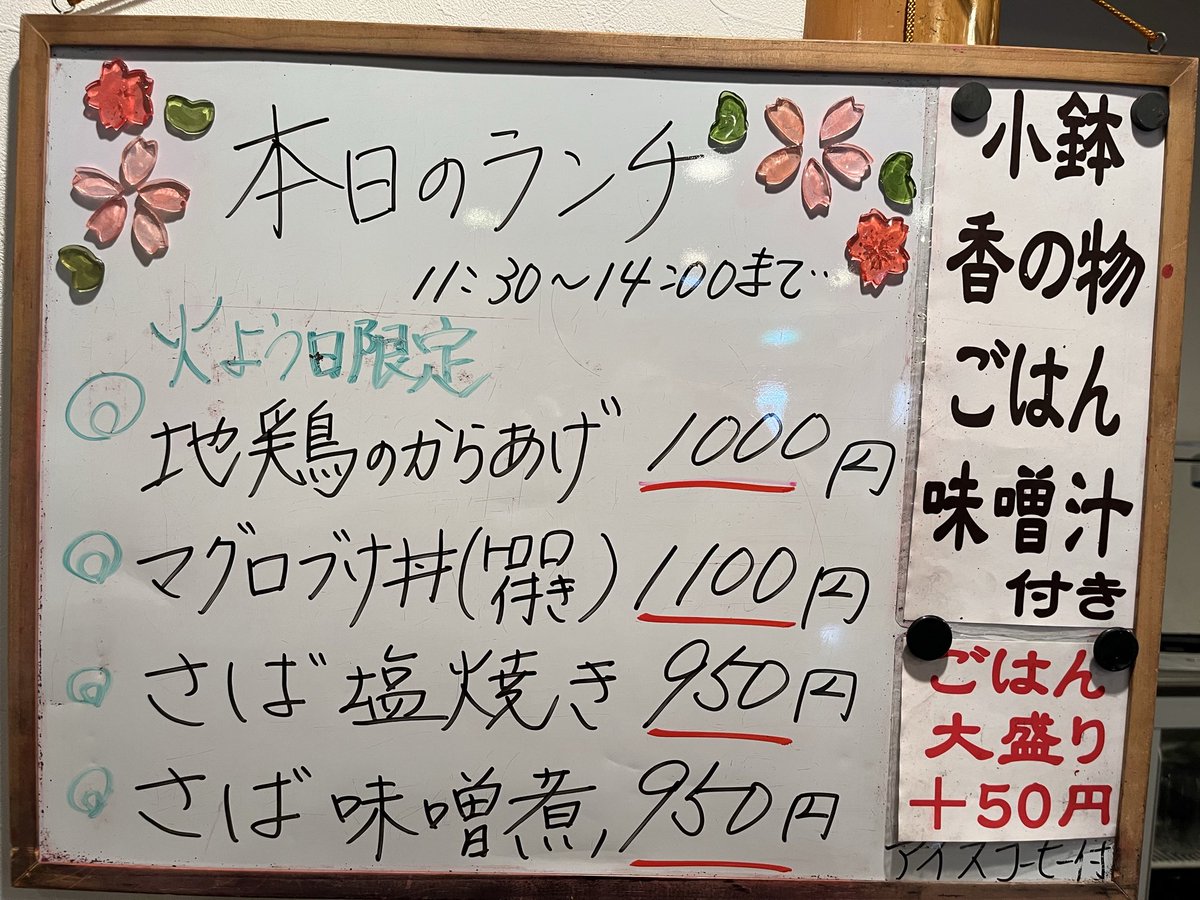 本日のランチ
11:30〜14:00まで
火よう日限定
地鶏のからあげ 1000円
マグロブツ丼(トロロ付き) 1100円
さば塩焼き 950円
さば味噌煮 950円
小鉢
香の物
ごはん
味噌汁
付き
ごはん
大盛り
+50円
アイスコーヒー付